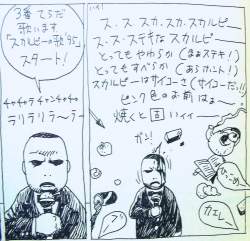 3番てらだ
歌います
「スカルピーの歌」
スタート!
チャチャラ チャンチャラ
ラリラリラ〜ラ〜
ス・ス・スカ・スカ・スカルピー
ス・ス・ステキな スカルピー
とってもやわらか(まぁステキ!)
とってもすべらか(あらホント!)
スカルピーはサイコーさ(サイコーだっ!!)
ピンク色のお前 はぁ〜
焼くと固いィィー
ガン!
カエレ